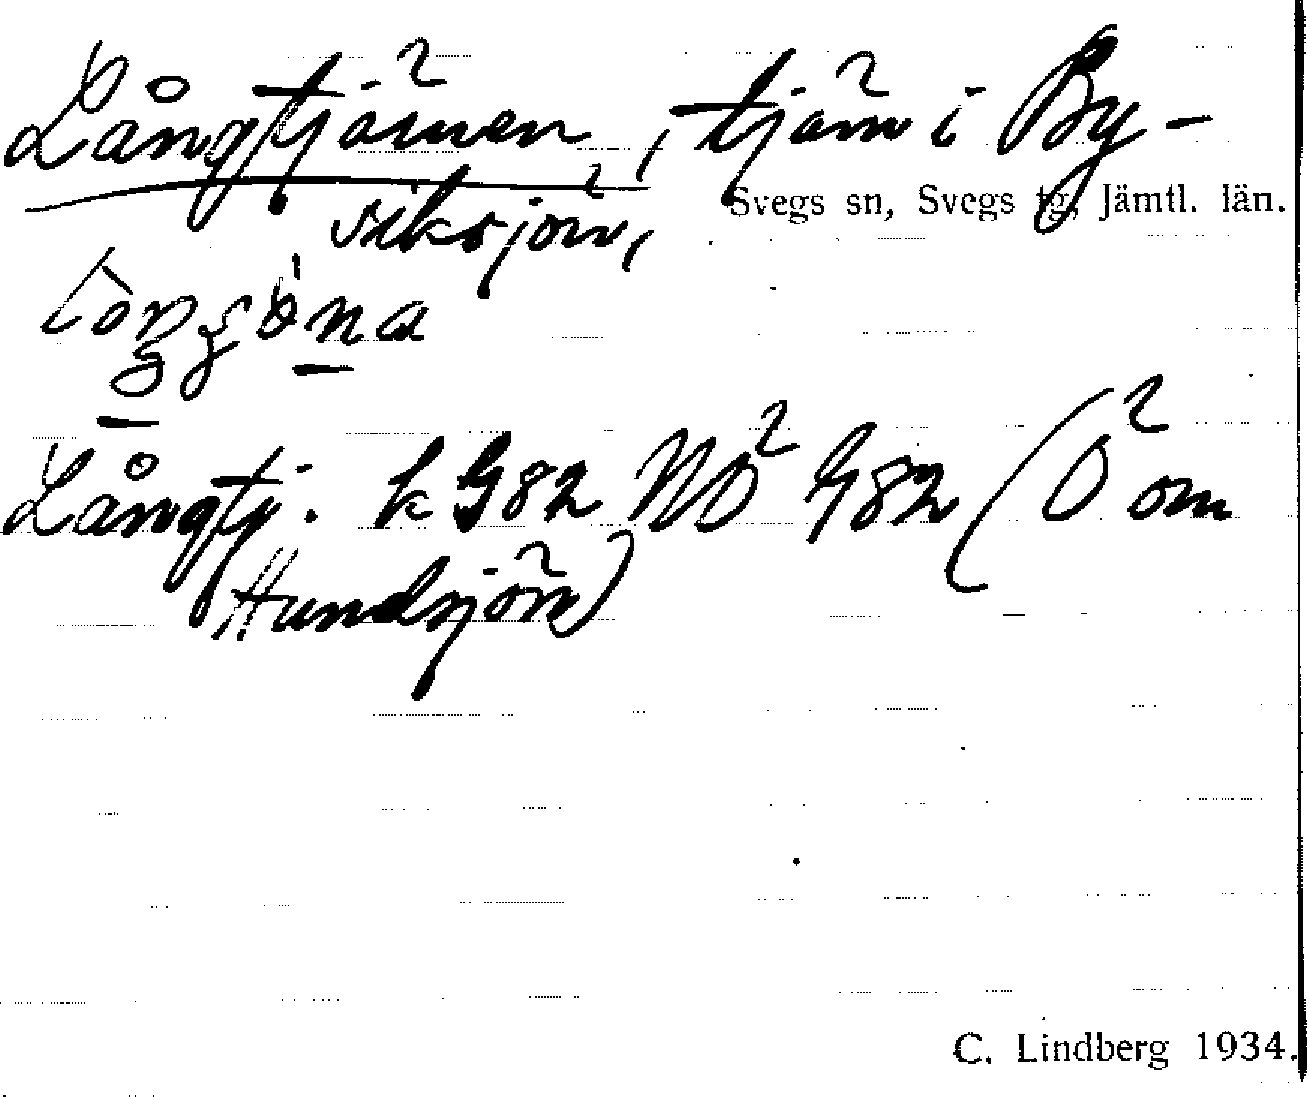 Långtjärnen, tjärn i By-
siksjön,
Svegs sn, Svegs tg, Jämtl. län.
Långtj. k G82 NO G82 (O om
Hundsjön)
C. Lindberg 1934.